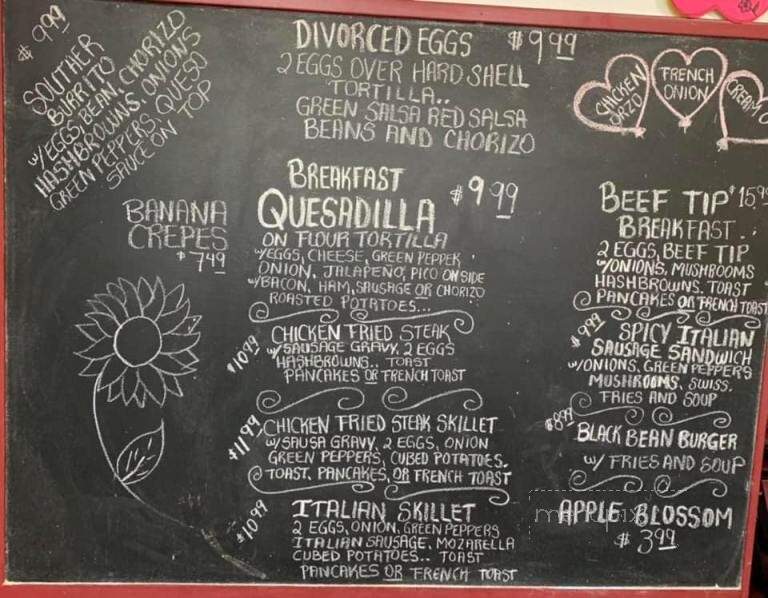 $ 9.99
SOUTHER
BURRITO
W/EGGS, BEAN, CHORIZO
HASHBROWNS, ONIONS
GREEN PEPPERS, QUESO
SAUCE ON TOP
BANANA
CREPES
$ 7.49
DIVORCED EGGS $9.99
2 EGGS OVER HARD SHELL
TORTILLA..
GREEN SALSA RED SALSA
BEANS AND CHORIZO
BREAKFAST
QUESADILLA $9.99
ON FLOUR TORTILLA
W/EGGS, CHEESE, GREEN PEPPER
ONION, JALAPEÑO, PICO ON SIDE
W/BACON, HAM, SAUSAGE OR CHORIZO
ROASTED POTATOES...
CHICKEN FRIED STEAK
$10.99 W/SAUSAGE GRAVY, 2 EGGS
HASHBROWNS.. TOAST
PANCAKES OR FRENCH TOAST
$11.99 CHICKEN FRIED STEAK SKILLET
W/SAUSA GRAVY, 2 EGGS, ONION
GREEN PEPPERS, CUBED POTATOES.
TOAST, PANCAKES, OR FRENCH TOAST
$10.99 ITALIAN SKILLET
2 EGGS, ONION, GREEN PEPPERS
ITALIAN SAUSAGE, MOZARELLA
CUBED POTATOES.. TOAST
PANCAKES OR FRENCH TOAST
CHICKEN
ORZO
FRENCH
ONION
CREAM O
BEEF TIP $15.99
BREAKFAST..
2 EGGS, BEEF TIP
W/ONIONS, MUSHROOMS
HASHBROWNS, TOAST
PANCAKES OR FRENCH TOAST
$9.99 SPICY ITALIAN
SAUSAGE SANDWICH
W/ONIONS, GREEN PEPPERS
MUSHROOMS, SWISS,
FRIES AND SOUP
$8.99 BLACK BEAN BURGER
W/ FRIES AND SOUP
APPLE BLOSSOM
$ 3.99